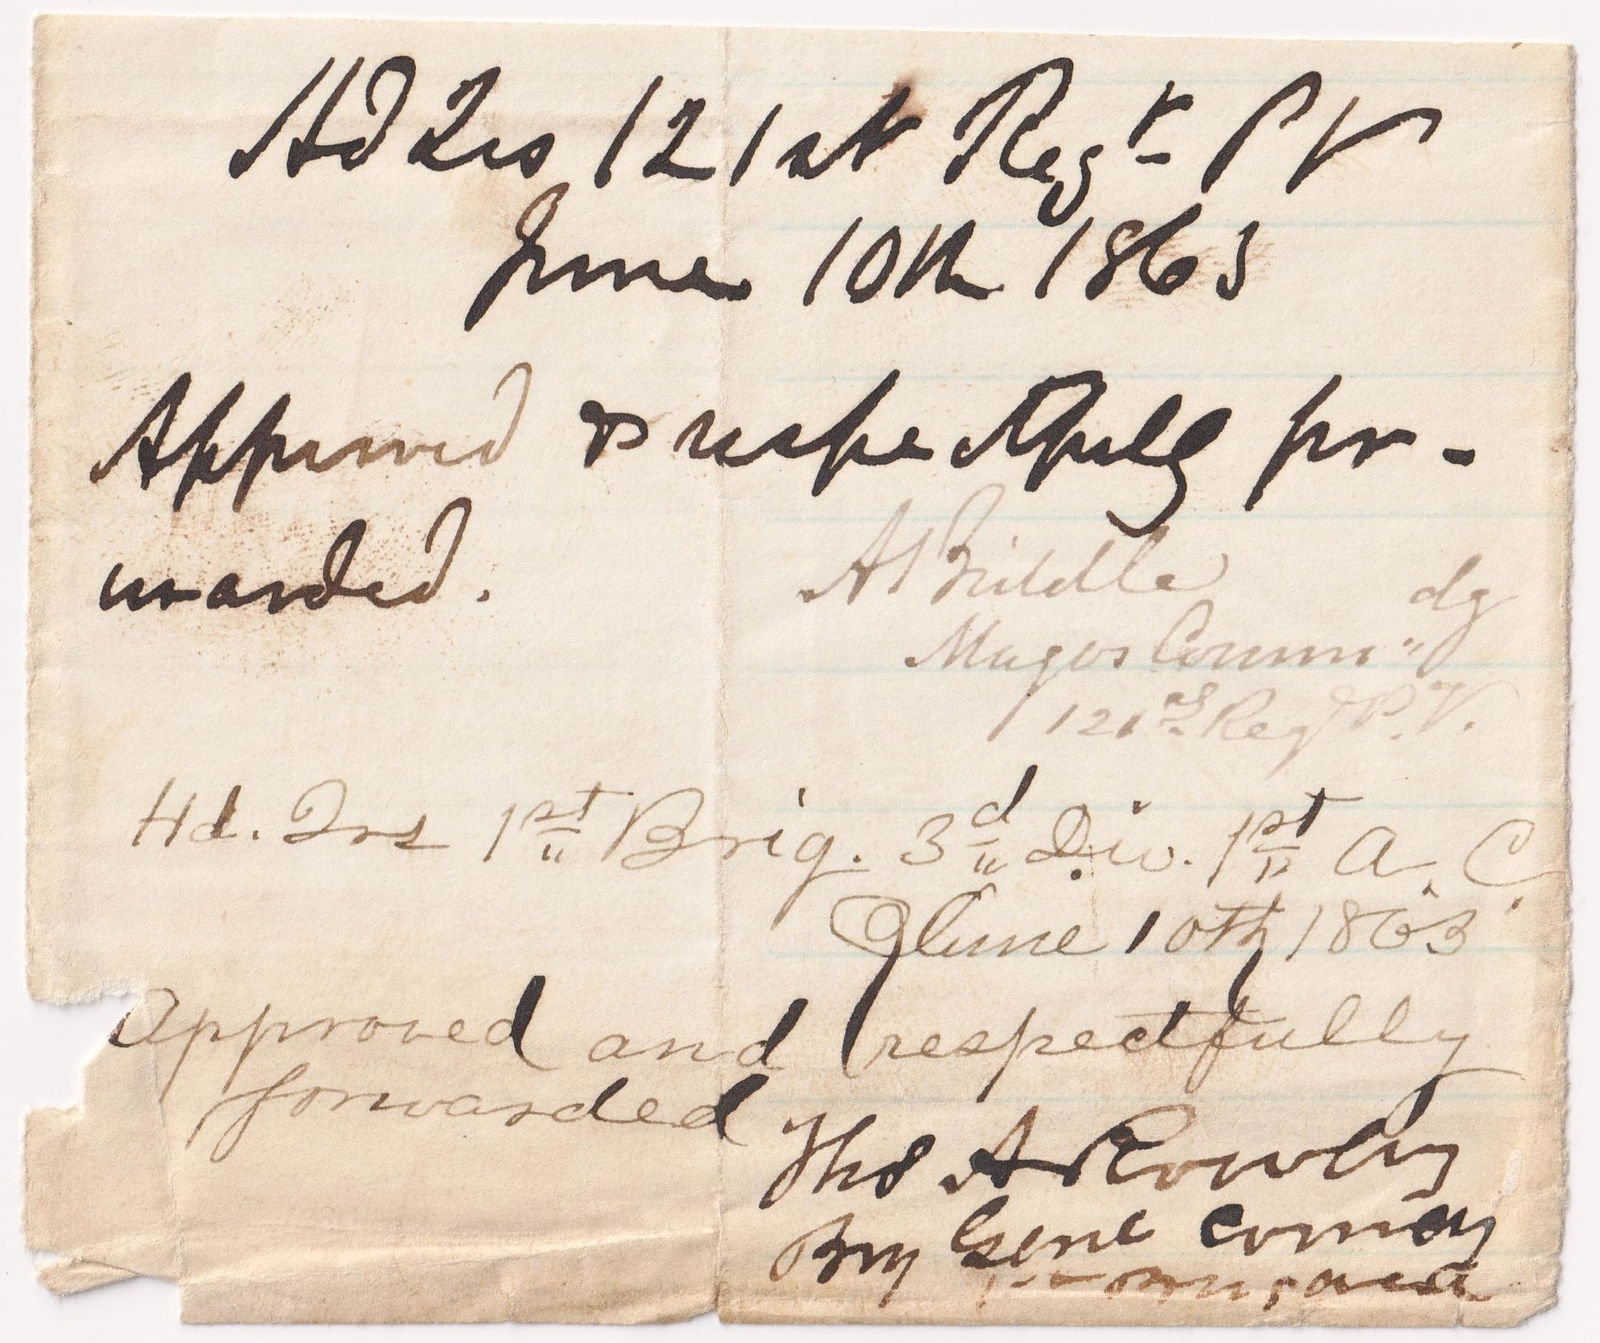 Hd Qrs 121st Regt P V
June 10th 1863
Approved & respectfully for-
warded.
A Biddle
Major Comm"dg
121st Regt P. V.
Hd. Qrs 1st Brig. 3d Div. 1st A. C.
June 10th 1863
Approved and respectfully
forwarded
Tho A Rowley
Brig Genl Comdg